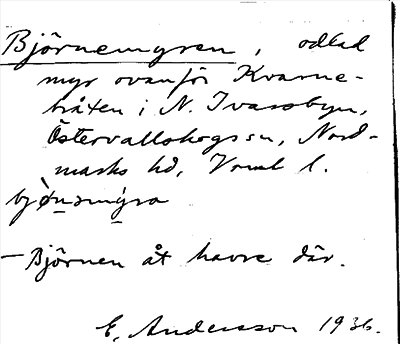 Björnemyren, odlad
myr ovanför Kvarne-
tråten i N. Ivarsbyn,
Östervallskogs sn, Nord-
marks hd, Vrml l.
bjö̀nsmýra
— Björnen åt havre där.
E. Andersson 1936.